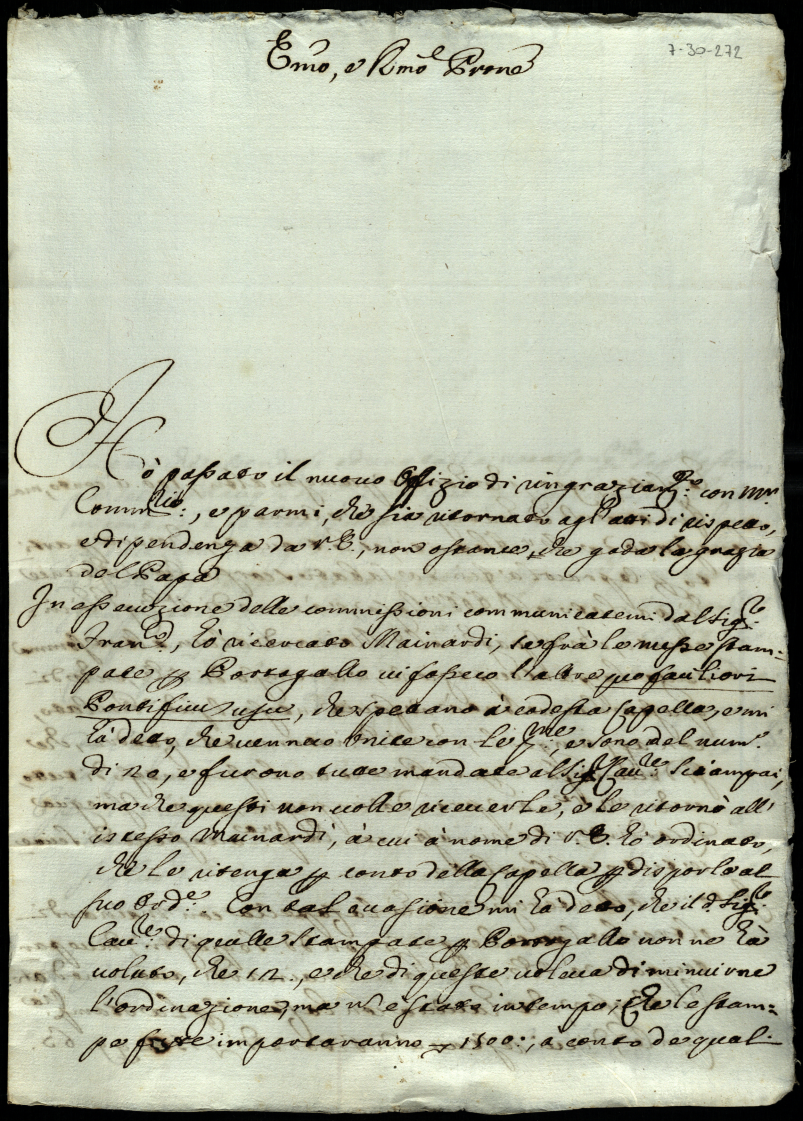 7-30-272
Emo, e Rmo Prone
Hò passato il nuovo Offizio di ringraziam.to con Mr.
Comm.rio, e parmi, che sia ritornato agl'atti di rispetto,
e dipendenza da V.E., non ostante, che goda la grazia
del Papa
In essecuzione delle commissioni communicatemi dal Sig.r
Fran.co, hò ricercato Mainardi, se frà le messe stam=
pate p Portogallo vi fossero l'altre pro faciliori
Pontificum usu, che spettano à codesta Capella, e mi
hà detto, che vennero unite con le me, e sono del num.o
di 120, e furono tutte mandate al Sig.r Cav.re Sciampai,
ma che questi non volle riceverle, e le ritornò all'
istesso Mainardi, à cui à nome di V.E. hò ordinato,
che le ritenga p conto della Capella p disporle al
suo Ord.e Con tal occasione mi hà detto, che il d.o Sig.r
Cav.re di quelle stampate p Portogallo non ne hà
voluto, che 12., e che di queste voleva diminuirne
l'ordinazione, ma n è stato in tempo; che le stam=
pe fatte importaranno 1500:, a conto de quali